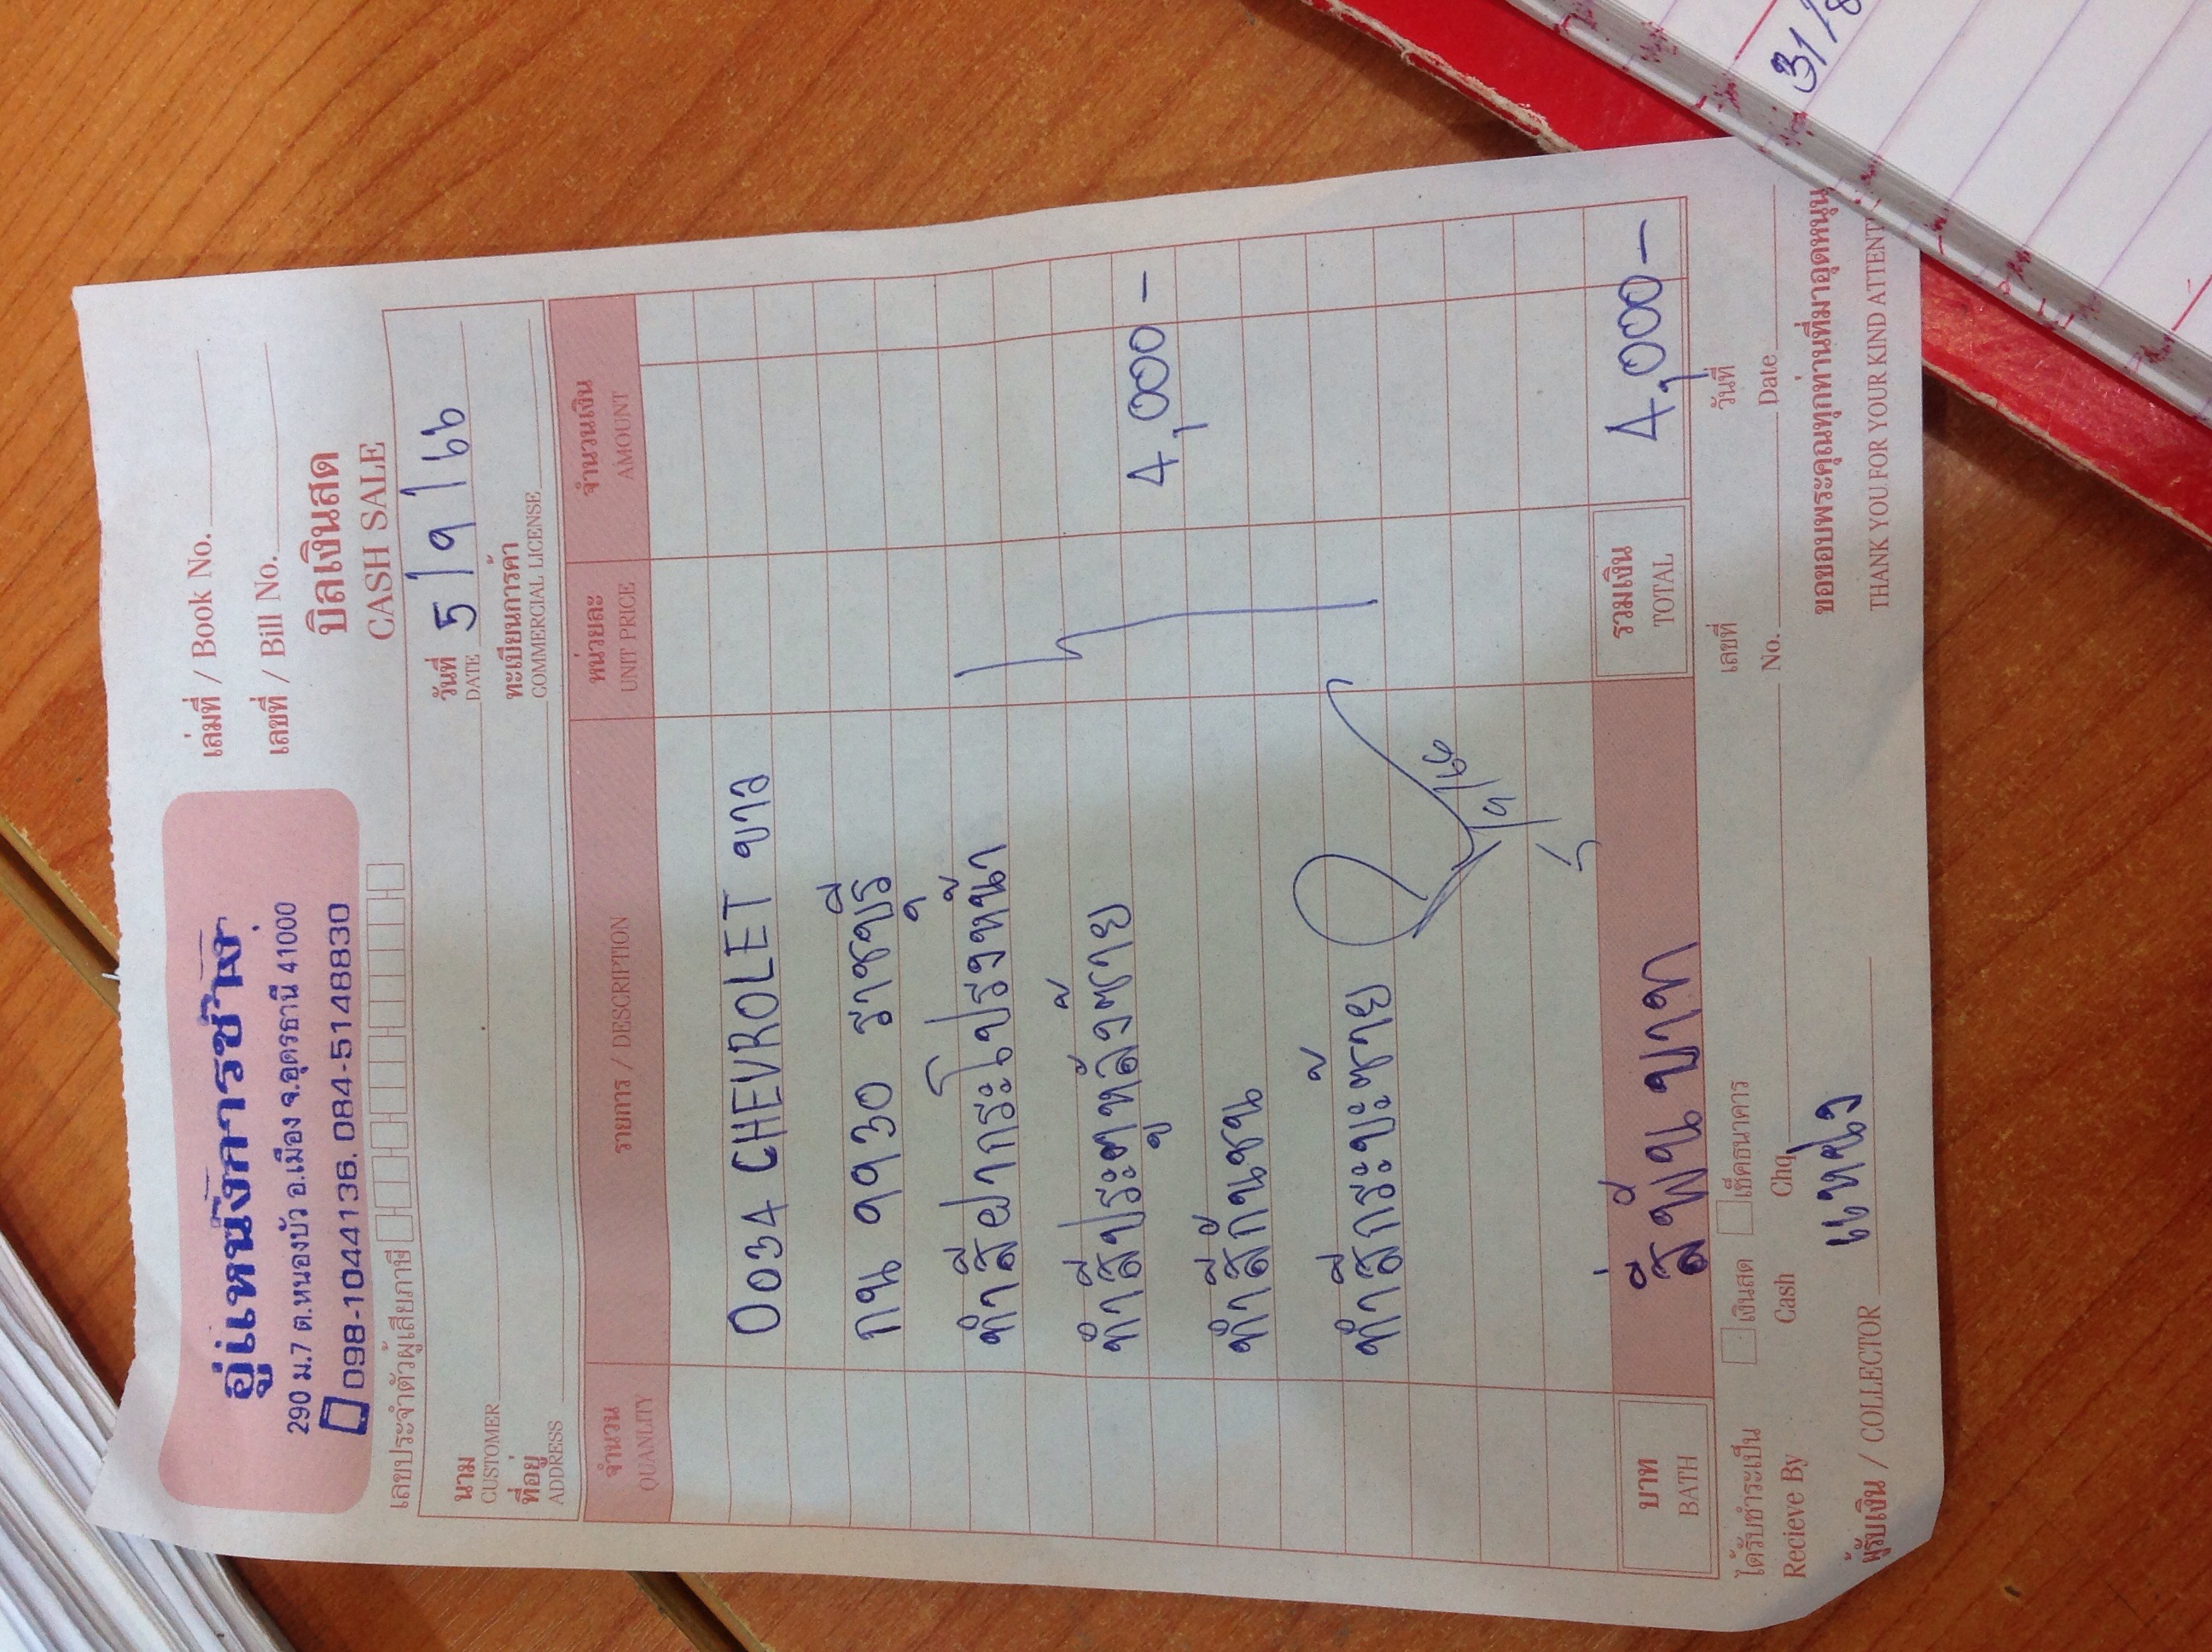 อู่แหนังการช่าง
290 ม.7 ต.หนองบัว อ.เมือง จ.อุดรธานี 41000
098-1044136. 084-5148830
เล่มที่ / Book No.
เลขที่ / Bill No.
บิลเงินสด
CASH SALE
เลขประจำตัวผู้เสียภาษี
วันที่ 5/9/66
DATE
นาม
CUSTOMER
ทะเบียนการค้า
COMMERCIAL LICENSE
ที่อยู่
ADDRESS
จำนวน รายการ / DESCRIPTION หน่วยละ จำนวนเงิน
QUANLITY UNIT PRICE AMOUNT
0034 CHEVROLET ขาว
กน 9930 ราชบุรี
ทำสีฝากระโปรงหน้า
ทำสีประตูหลังซ้าย 4,000-
ทำสีกันชน
ทำสีกระบะซ้าย
บาท สี่พันบาท รวมเงิน 4,000-
BATH TOTAL
ได้รับชำระเป็น เงินสด เช็คธนาคาร เลขที่ วันที่
Recieve By Cash Chq. No. Date
ผู้รับเงิน / COLLECTOR แหนัง
ขอขอบพระคุณทุกท่านที่มาอุดหนุน
THANK YOU FOR YOUR KIND ATTENT
31/8